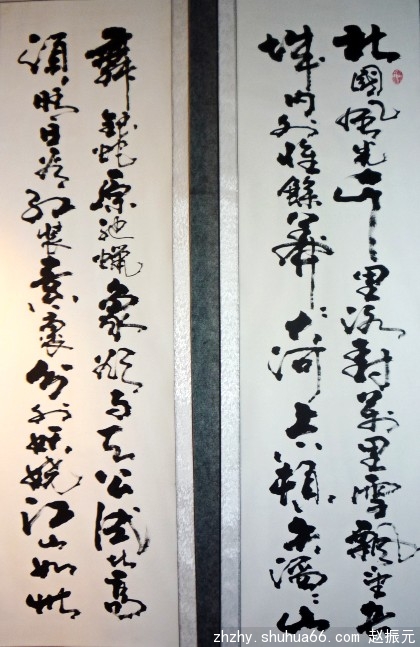 北國風光千里冰封萬里雪飄望長
城内外惟餘莽〻大河上下頓失滔〻山
舞銀蛇原馳蠟象欲与天公试比高
須晴日看红裝素裹分外妖嬈江山如此
zhzhy.shuhua66.com 赵振元